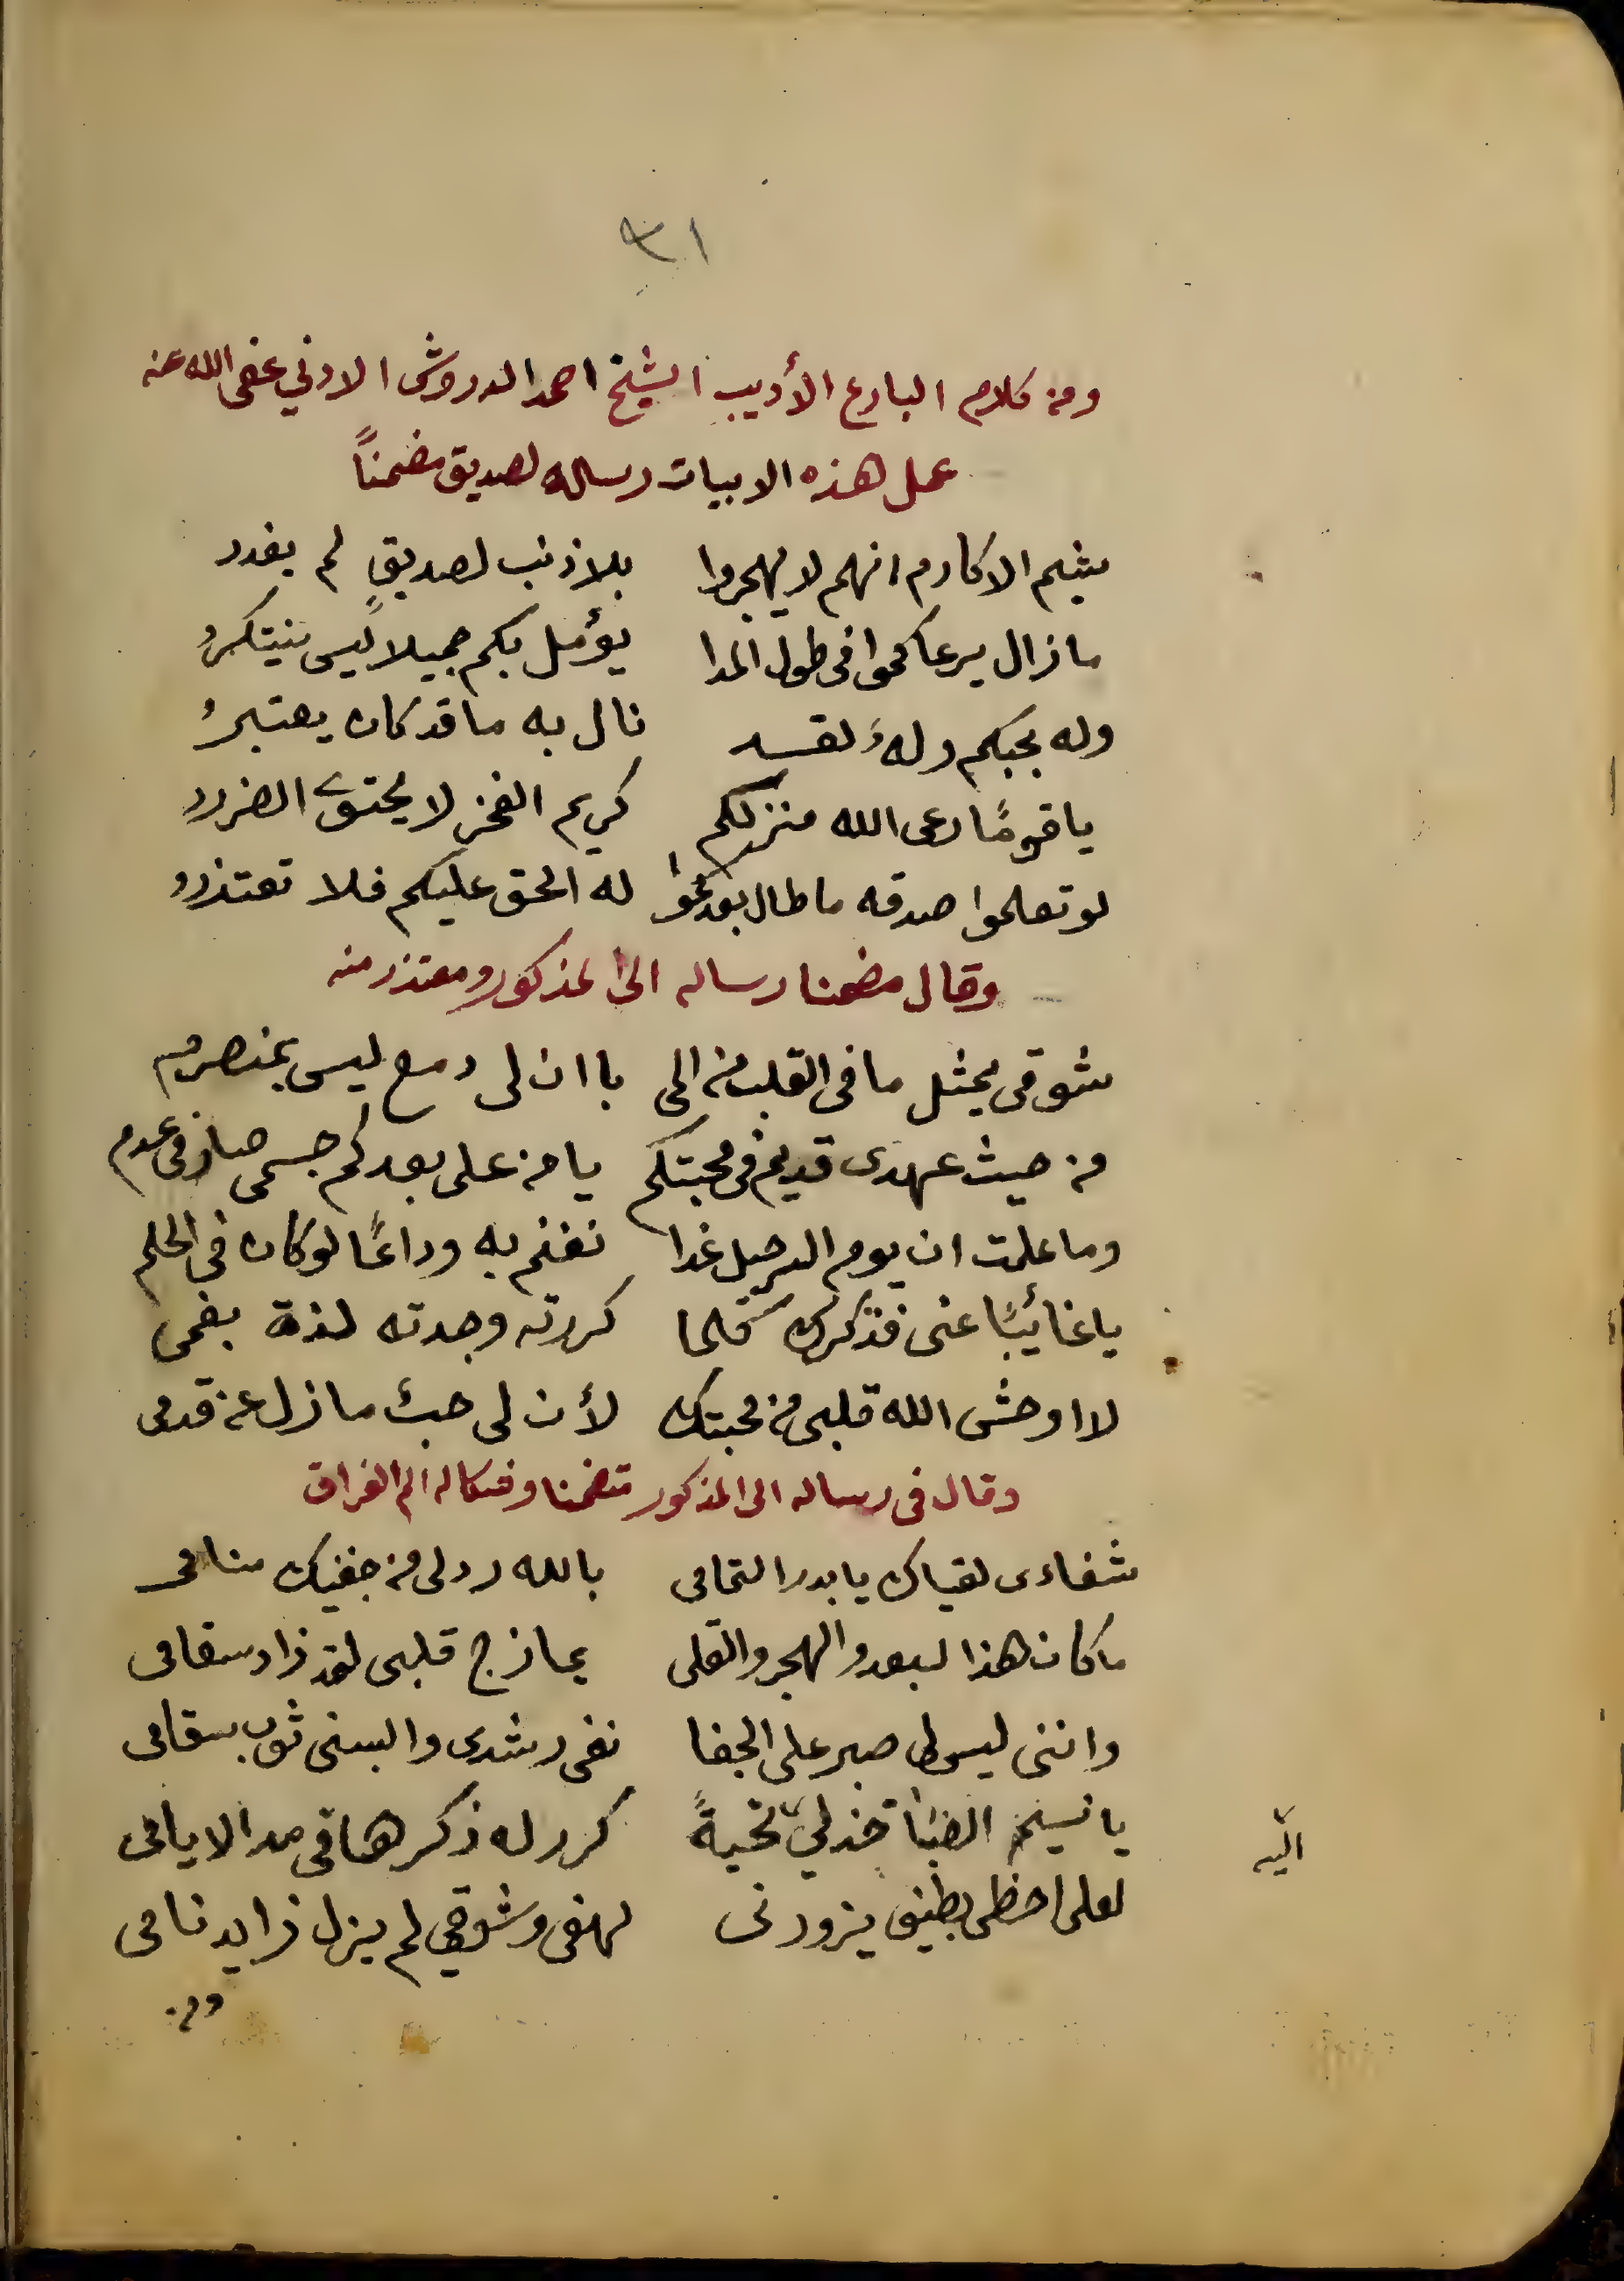 ٣١
ومن كلام البارع الأديب الشيخ احمد الدروش الادني عفى الله عنه
عمل هذه الابيات رساله لصديق مضمناً
شيم الاكارم انهم لا يهجروا بلا ذنب لصديقٍ لم يغدر
ما زال يرعاكموا فى طول المدا يؤمل بكم جميلا ليس
وله بحبكم ولهٌ لقد نال به ما قد كان يعتبرُ
يا قومًا رعى الله منزلكم كريم الفخر لا يحتوى الضرر
لو تعلموا صدقه ما طال بعدكموا له الحق عليكم فلا تعتذرو
وقال مضمنا رساله الى المذكور ومعتذر منه
شوقى يمثل ما فى القلب من المى باان لى دمع ليس بمنصرم
من حيث عهدى قديم فى محبتكم يا من على بعدكم جسمى صار فى عدم
وما علمت ان يوم الرحيل غدا نغنم به وداعًا لوكان فى الحلم
يا غائبًا عنى فذكرك كلما كررته وجدته لذة بفمى
لا اوحش الله قلبى من محبتك لأن لى حبٌ ما زل عن قدمى
وقال فى رساله الى المذكور متضمنا وشكا له الم الفراق
شفاءى لقياك يا بدر التمامى بالله رد لى من جفنيك منامى
ما كان هذا البعد والهجر والقلى يمازج قلبى لقد زاد سقامى
واننى ليس لى صبر على الجفا نفى رشدى والبسنى ثوب سقامى
يا نسيم الصبا خذ لي تحيةً كرر له ذكرها فى مدا الايامى
اليه
لعلى احظى بطيف يزورنى لهفى وشوقي لم يزل زايد نامى
ومن